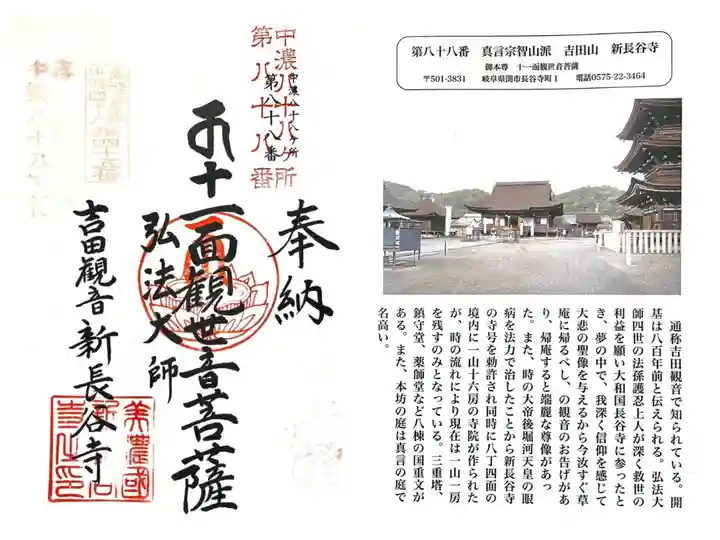 第八十八番　真言宗智山派　吉田山　新長谷寺
御本尊　十一面観世音菩薩
〒501-3831　岐阜県関市長谷寺町1　電話0575-22-3464
通称吉田観音で知られている。開
基は八百年前と伝えられる。弘法大
師四世の法孫護忍上人が深く救世の
利益を願い大和国長谷寺に参ったと
き、夢の中で、我深く信仰を感じて
大悲の聖像を与えるから今汝すぐ草
庵に帰るべし、の観音のお告げがあ
り、帰庵すると端麗な尊像があっ
た。また、時の大帝後堀河天皇の眼
病を法力で治したことから新長谷寺
の寺号を勅許され同時に八丁四面の
境内に一山十六房の寺院が作られた
が、時の流れにより現在は一山一房
を残すのみとなっている。三重塔、
鎮守堂、薬師堂など八棟の国重文が
ある。また、本坊の庭は真言の庭で
名高い。
奉納
中濃八十八ヶ所
第八十八番
中濃八十八ヶ所
第八十八番
十一面観世音菩薩
弘法大師
吉田観音新長谷寺
美濃國
新長谷
寺之印